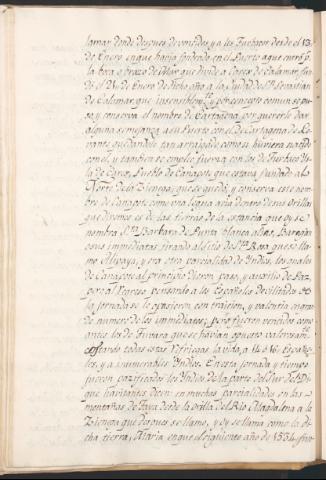 lamar donde despues de vencidos, y a los Turbacos desde el 13
de Enero en que havia fondeado en el Puerto a que entró p.r
la boca, o brazo de Mar que divide a Carex de Calamar, fun
dó el 21 de Enero de dicho año la Ciudad de S.n Sevastian
de Calamar, que insensiblem.te y por concepto comun se pu
so, y conserva el nombre de Cartagena, por quererle dar
alguna semejanza a su Puerto con el de Cartagena de Le
vante quedandole tan arraigado como si huviera nacido
con el, y tambien se empleo fuerza con los de
la de Carex, Pueblo de Canapote que estava fundado al
Norte de la Cienega, que se quedó, y conserva este nom
bre de Canapote como una legua
que diremos es de las tierras de la estancia que oy se
nombra S.ta Barbara de Punta blanca
en sus inmediatas tirando al sitio de S.ta Rosa que se lla
mo Alipaya, y era otra parcialidad de Yndios, los quales
de Canapote al principio dieron paso, y auxilio de Paz,
pero al regreso pensando a los Españoles debilitados de
la jornada se le opusieron con traicion, y valentia
de numero de los inmediatos; pero fueron vencidos como
antes los de Turvaco que se havian opuesto valerosam.te
costando todas estas refriegas la vida, a 14 o 16 Españo
les, y a innumerables Yndios. En esta jornada y tiempo
fueron pacificados los Yndios de la parte del Sur del
que habitantes dicen en muchas parcialidades en las
montañas de desde la orilla del Rio Magdalena a la
Cienega que despues se llamo, y oy se llama como la di
cha tierra, Maria en que el siguiente año de 1534